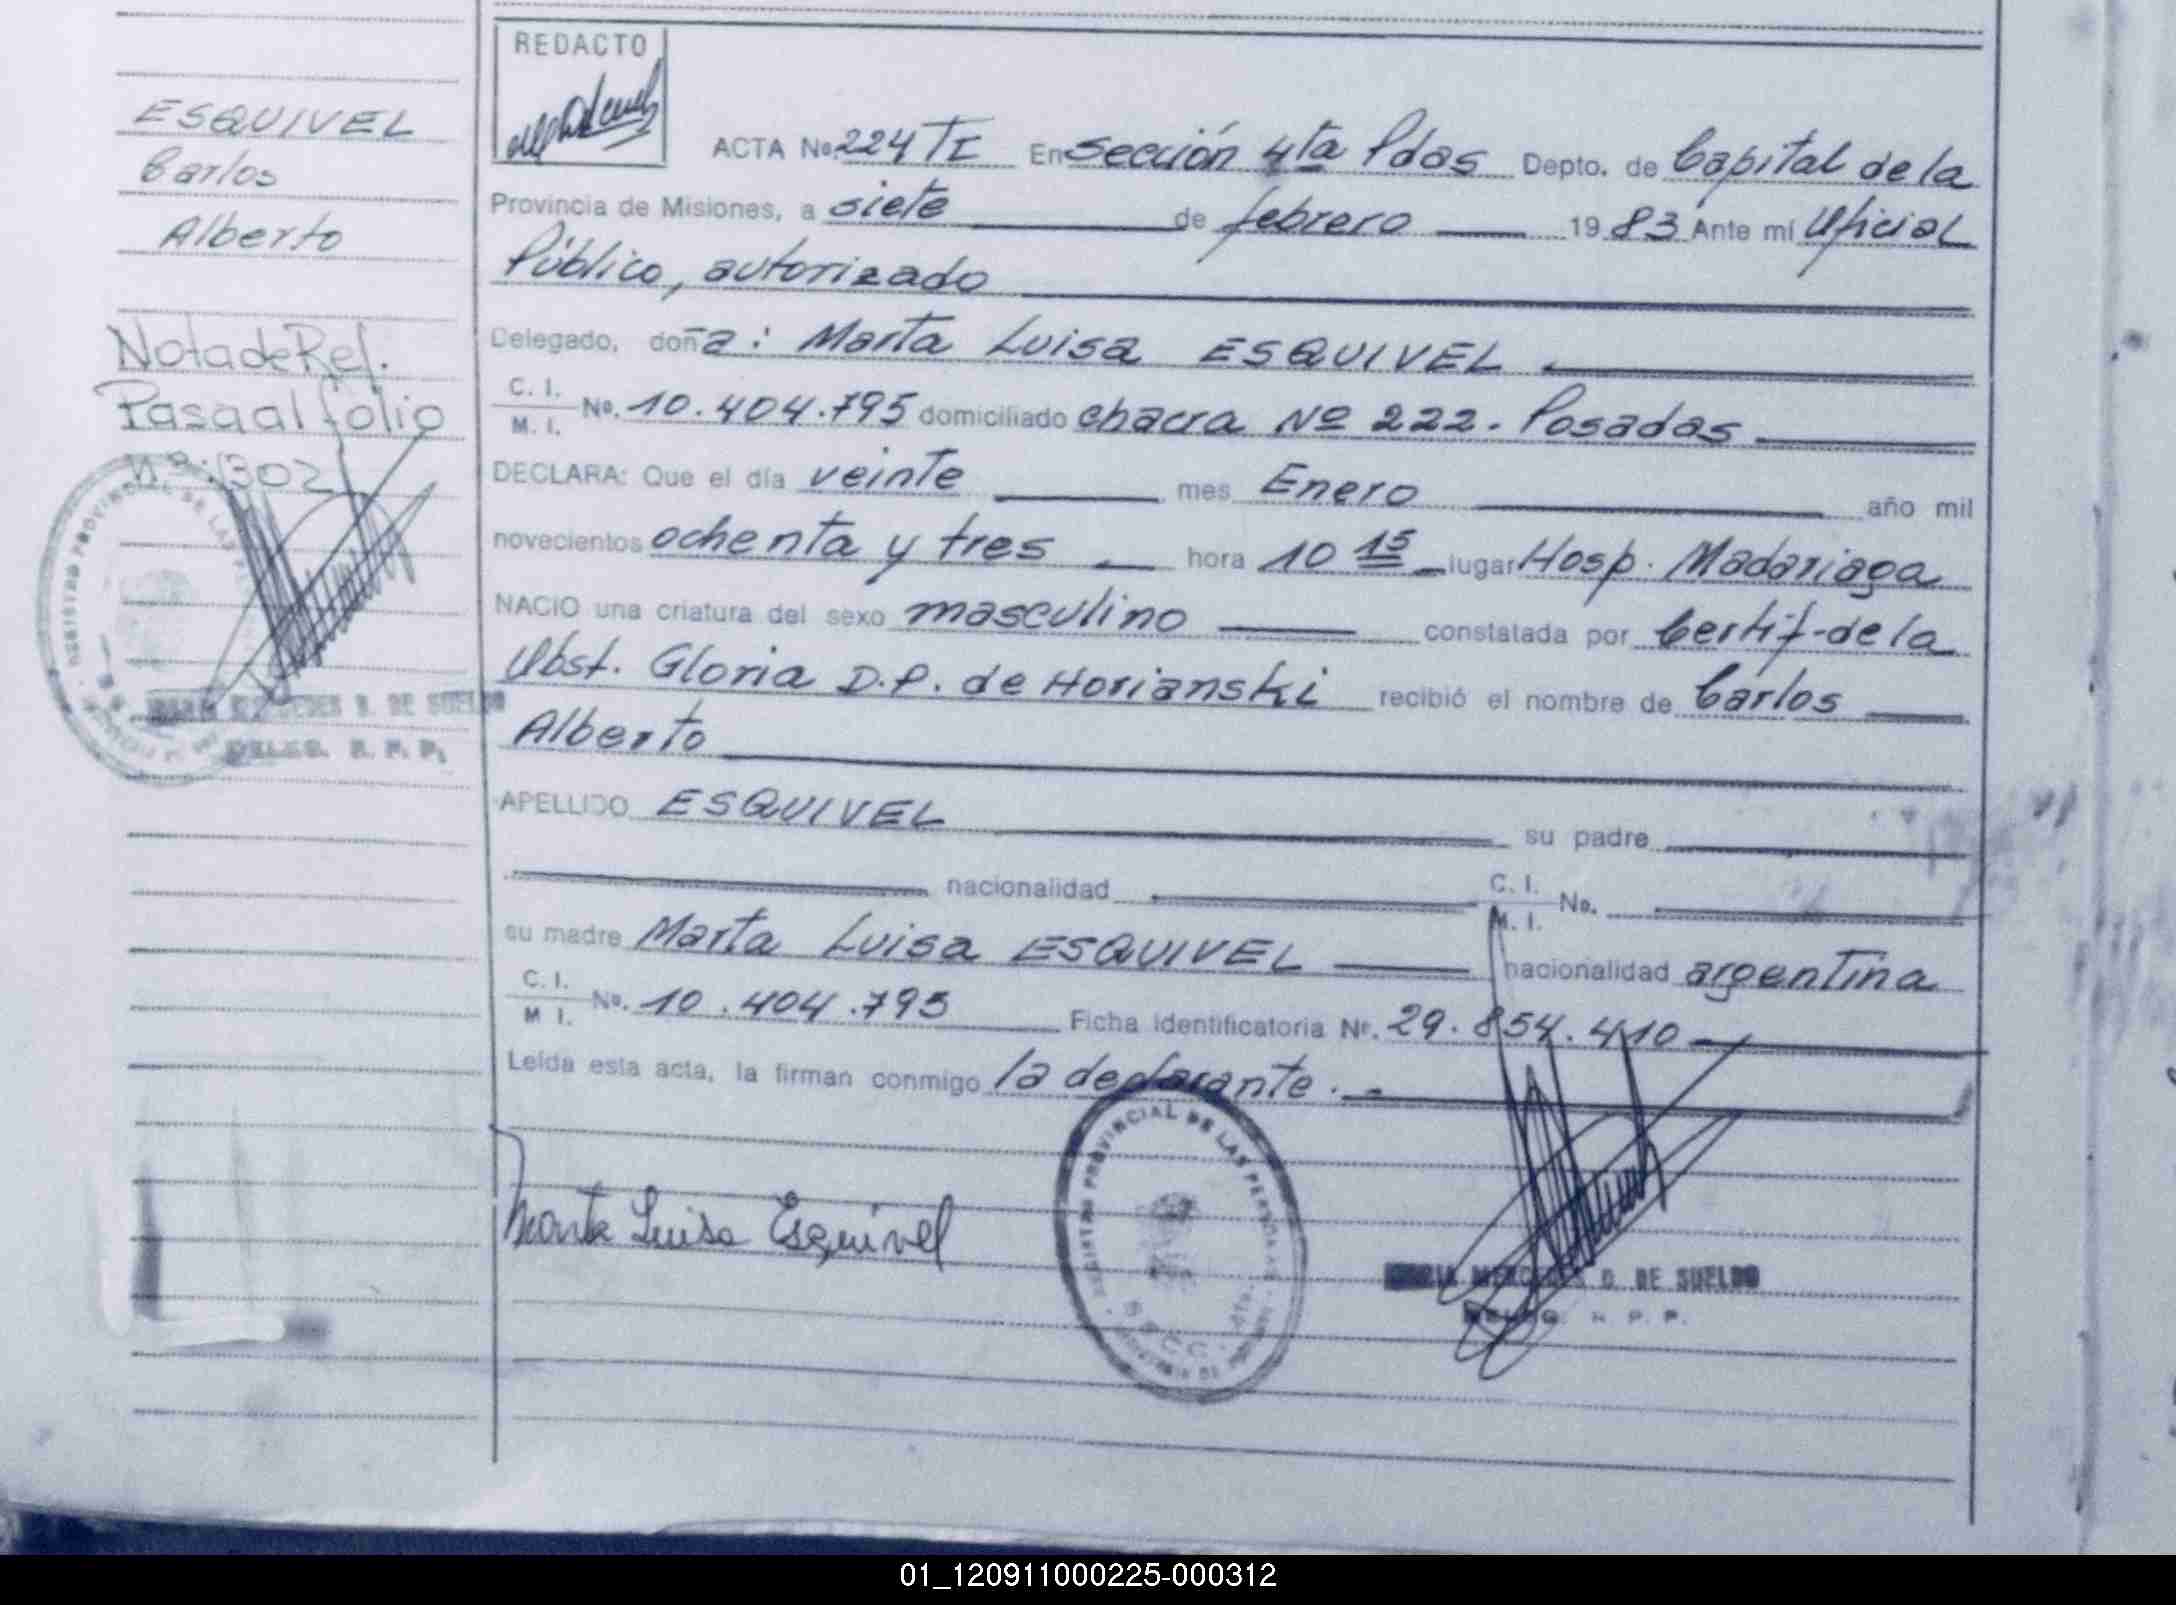 ESQUIVEL
Carlos
Alberto
Nota de Ref.
Pasa al folio
Nº: 302
REGISTRO PROVINCIAL DE LAS
DE SUELDO
DELEG. R. P. P.
REDACTO
ACTA No. 224 TI En Sección 4ta Pdas Depto. de Capital de la
Provincia de Misiones, a siete de febrero 1983 Ante mí Oficial
Público, autorizado
Delegado, doña: Marta Luisa ESQUIVEL
C. I.
M. I. No. 10.404.795 domiciliado chacra Nº 222. Posadas
DECLARA: Que el día veinte mes Enero año mil
novecientos ochenta y tres hora 10 15 lugar Hosp. Madariaga
NACIO una criatura del sexo masculino constatada por Certif. de la
Obst. Gloria D.P. de Horianski recibió el nombre de Carlos
Alberto
APELLIDO ESQUIVEL su padre
nacionalidad C. I.
M. I. No.
su madre Marta Luisa ESQUIVEL nacionalidad argentina
C. I.
M I. No. 10.404.795 Ficha identificatoria Nº. 29.854.410
Leída esta acta, la firman conmigo la declarante.-
Marta Luisa Esquivel
REGISTRO PROVINCIAL DE LAS PERSONAS
MARIA MERCEDES D. DE SUELDO
DELEG. R. P. P.
01_120911000225-000312